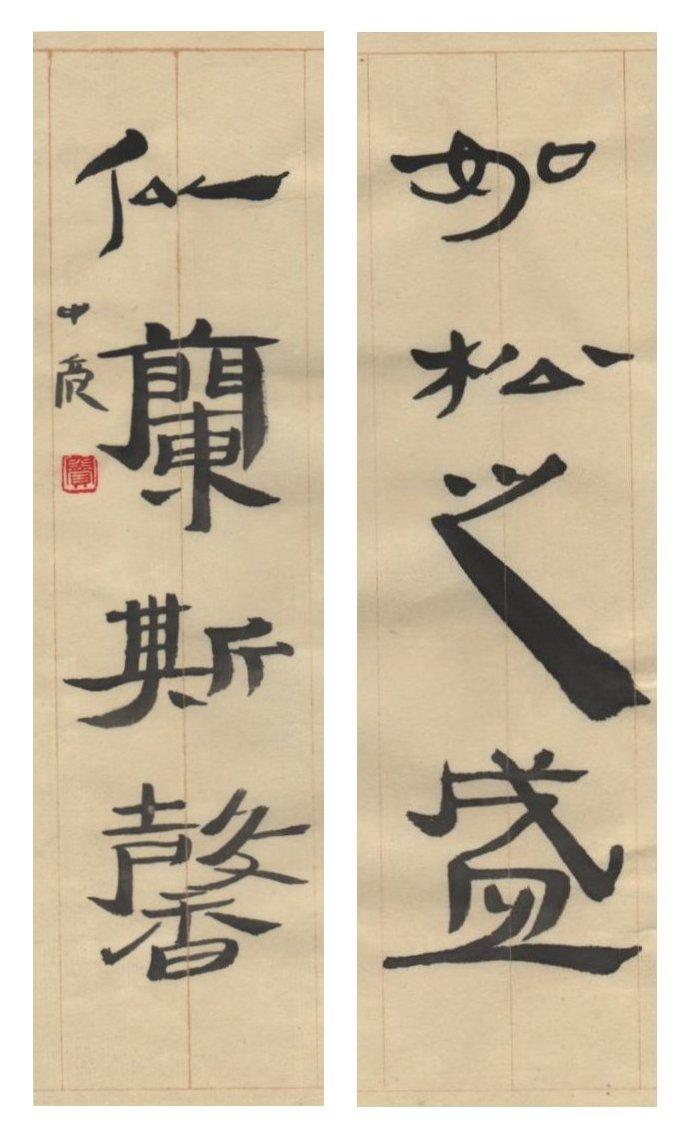 如松之盛
似蘭斯馨
中